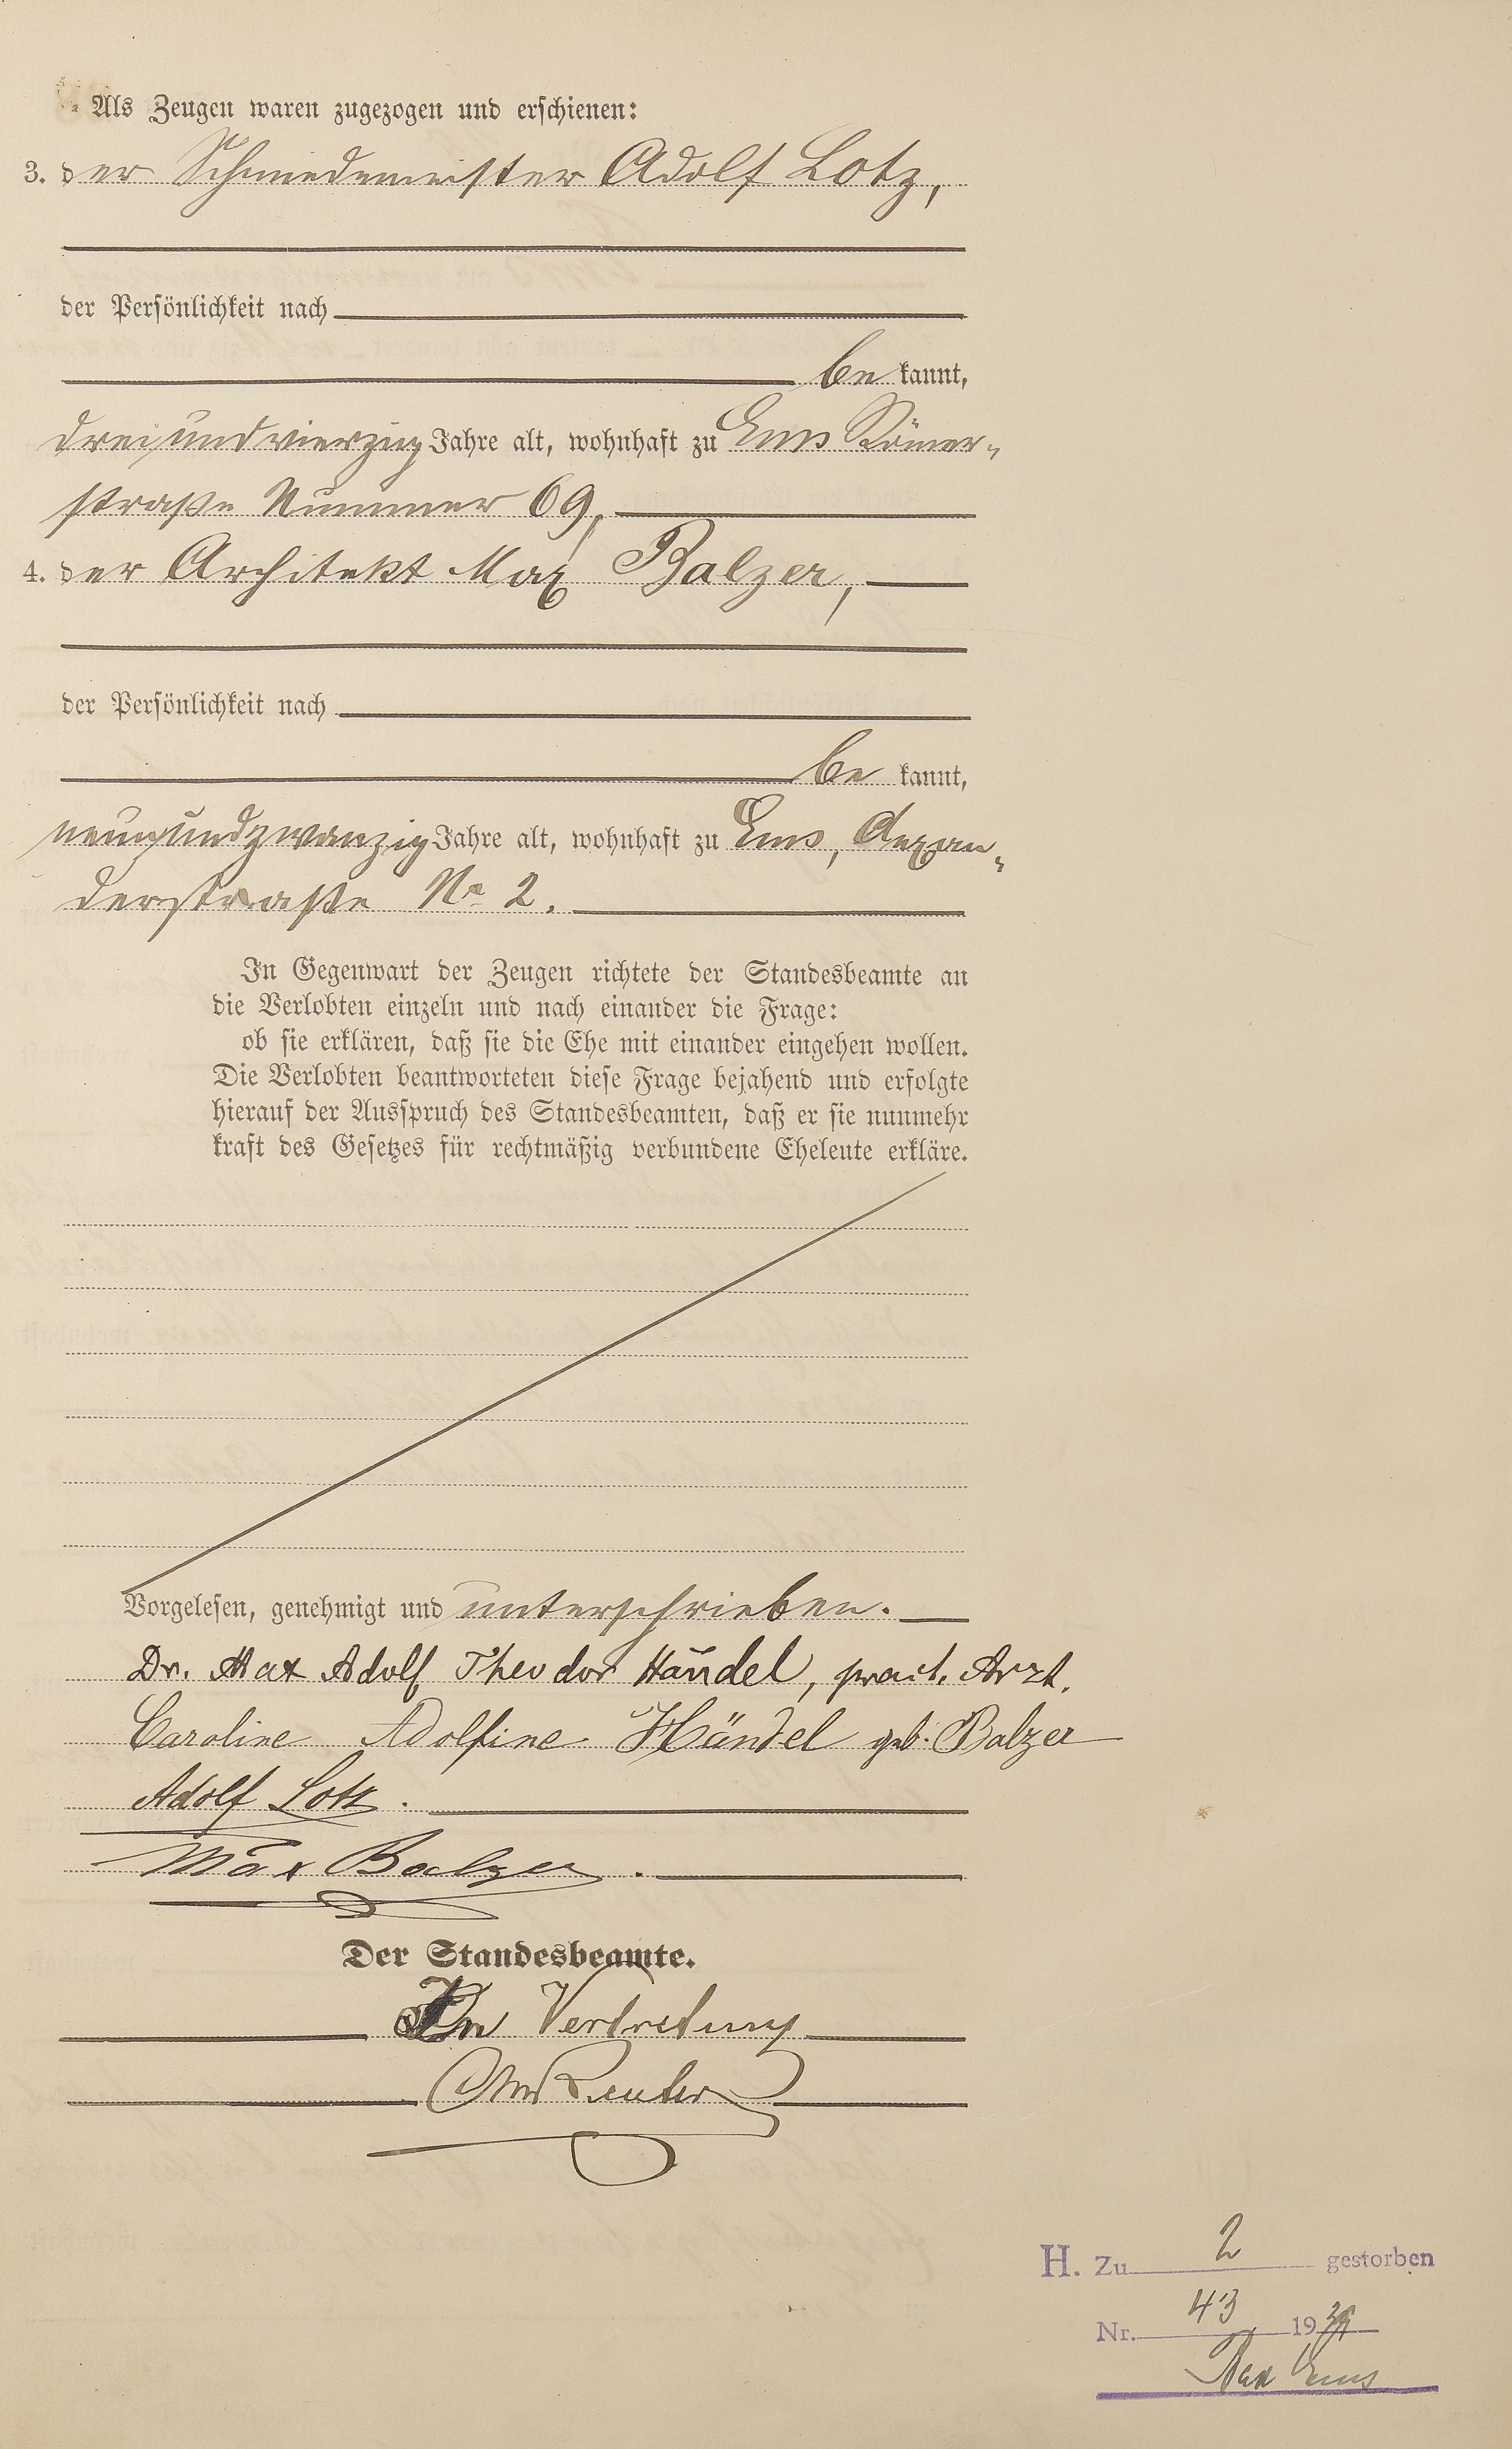 Als Zeugen waren zugezogen und erschienen:
3. der Schmiedemeister Adolf Lotz,
der Persönlichkeit nach
be kannt,
dreiundvierzig Jahre alt, wohnhaft zu Ems Römer-
straße Nummer 69,
4. der Architekt Max Balzer,
der Persönlichkeit nach
be kannt,
neunundzwanzig Jahre alt, wohnhaft zu Ems, Alexan-
derstraße No 2.
In Gegenwart der Zeugen richtete der Standesbeamte an
die Verlobten einzeln und nach einander die Frage:
ob sie erklären, daß sie die Ehe mit einander eingehen wollen.
Die Verlobten beantworteten diese Frage bejahend und erfolgte
hierauf der Ausspruch des Standesbeamten, daß er sie nunmehr
kraft des Gesetzes für rechtmäßig verbundene Eheleute erkläre.
Vorgelesen, genehmigt und unterschrieben.
Dr. Max Adolf Theodor Händel, pract. Arzt.
Caroline Adolfine Händel geb. Balzer
Adolf Lotz.
Max Balzer.
Der Standesbeamte.
In Vertretung
Reuter
H. Zu 2 gestorben
Nr. 43 1939
Bad Ems